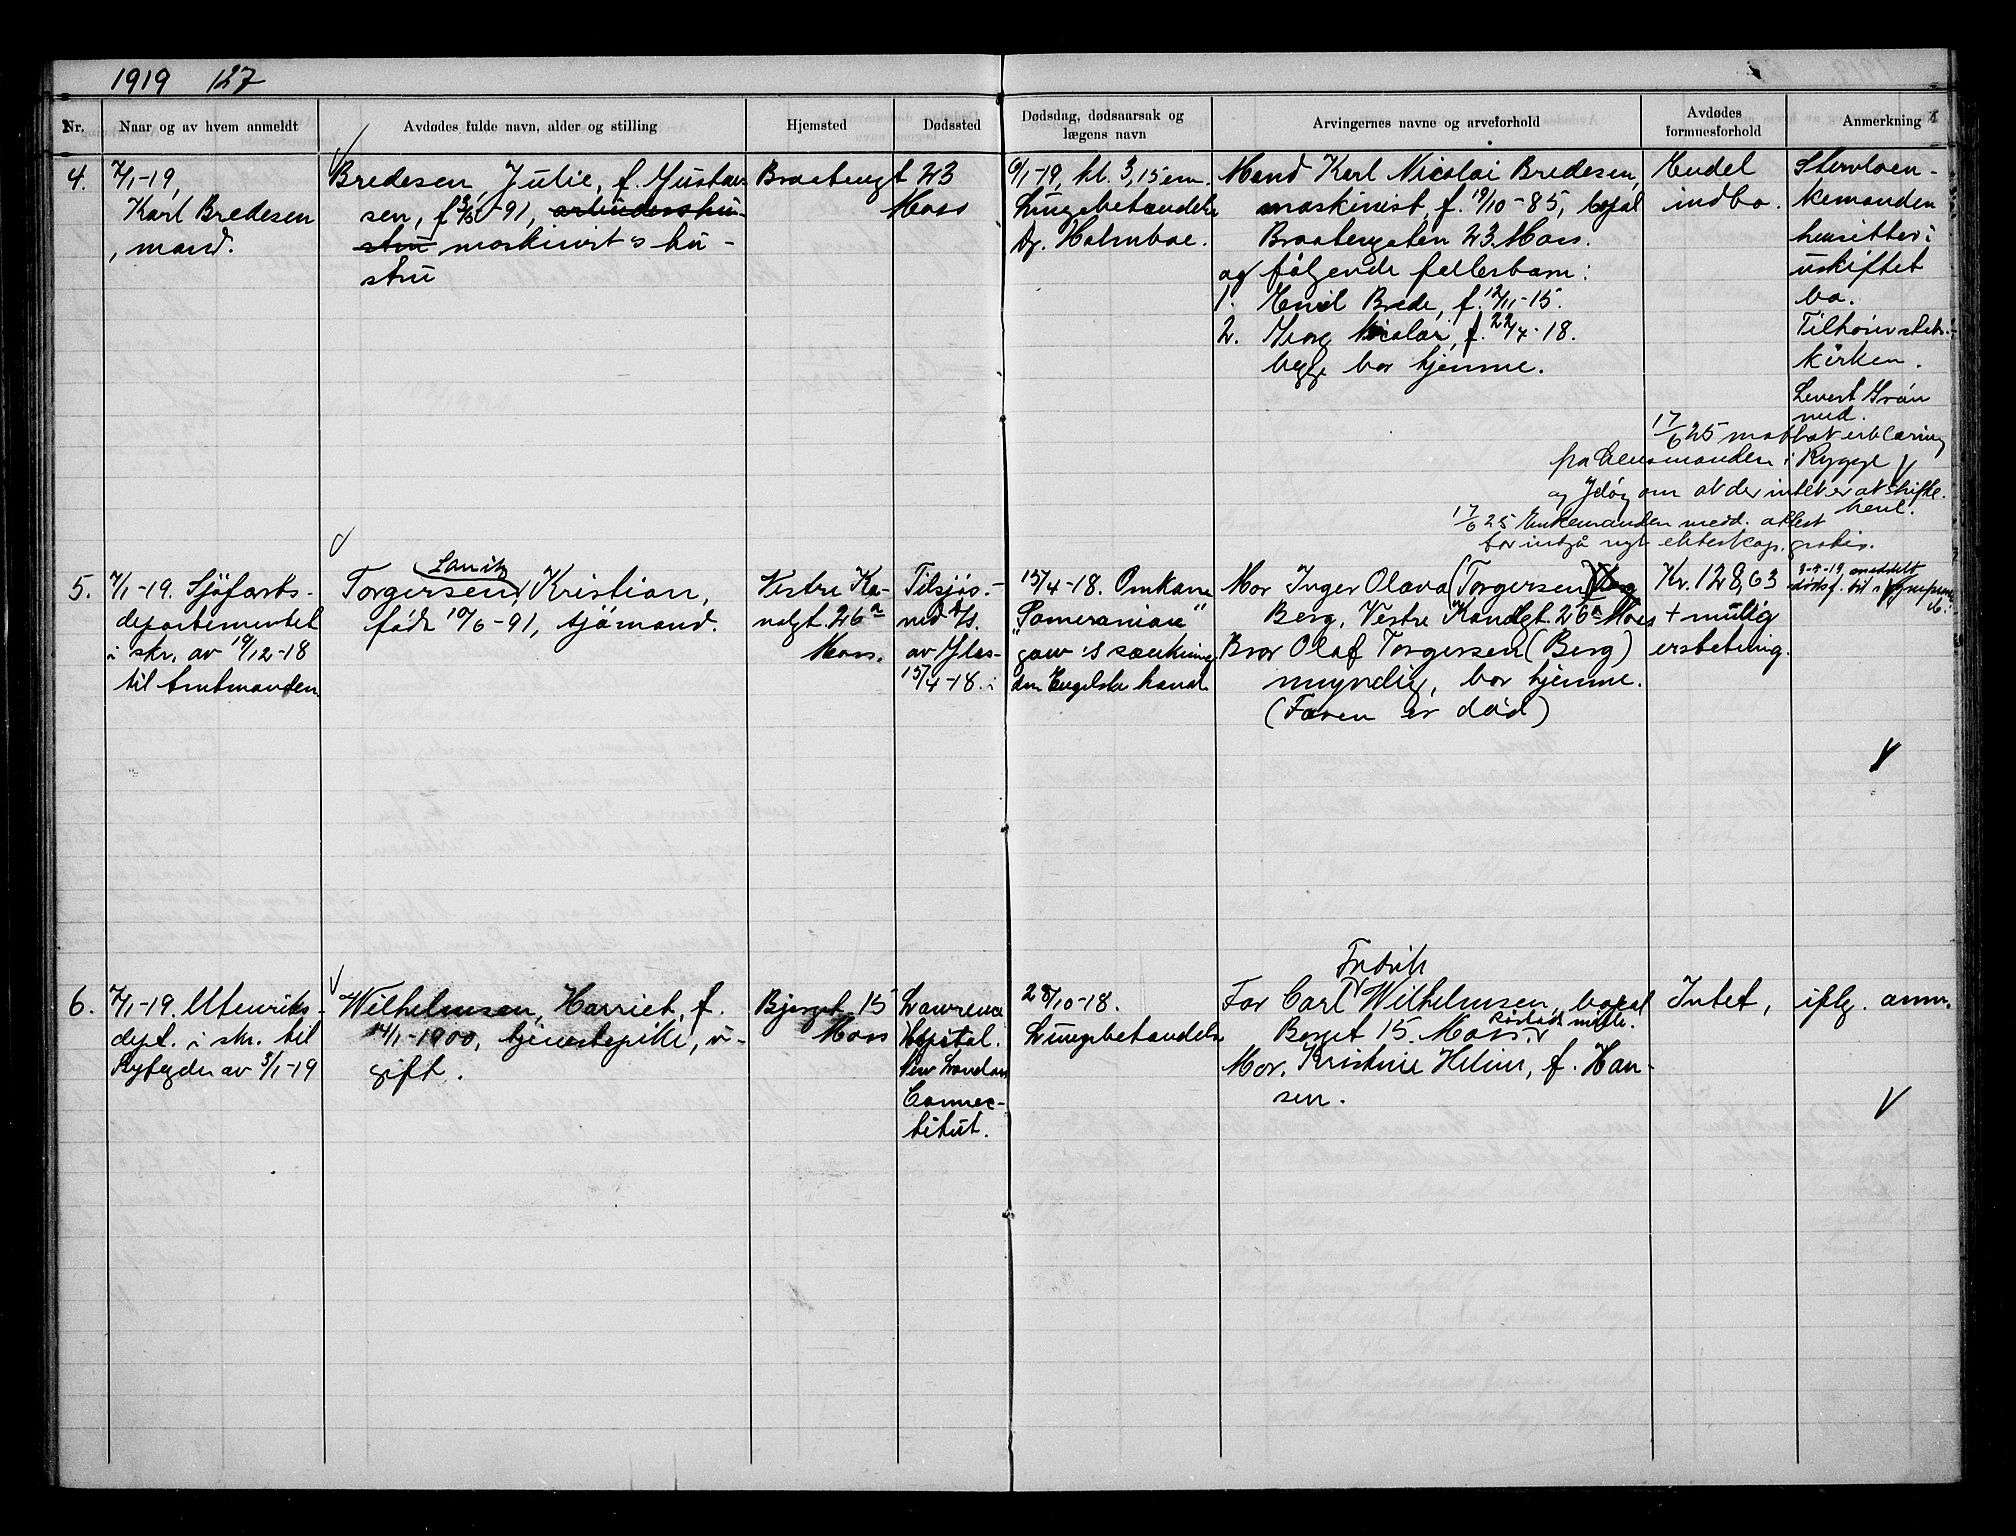 1919 127
Nr.
Naar og av hvem anmeldt
Avdødes fulde navn, alder og stilling
Hjemsted
Dødssted
Dødsdag, dødsaarsak og
lægens navn
Arvingernes navne og arveforhold
Avdødes
formuesforhold
Anmerkning
4.
7/1-19,
Karl Bredesen
, mand.
Bredesen, Julie, f. Gustav-
sen, f. -91, arbeidershu-
stru moskinist's hu-
stru
Braatengt 23
Moss
6/1-19, kl. 3,15 em.
Lungebetændelse
Dr. Holmboe.
Mand Karl Nicolai Bredesen,
maskinist, f. 19/10-85, bopæl
Braatengaten 23 Moss.
og følgende fellesbarn:
1. Emil Brede, f. 12/11-15.
2. Georg Nicolai, f. 22/4-18.
begge bor hjemme.
Endel
indbo.
Stervboen-
kemanden
hensitter i
uskiftet
bo.
Tilhører stats-
kirken.
Levert Grøn
17/6 25 mottat erklæring
fra lensmanden i Rygge
og Jeløy om at der intet er at skifte.
17/6 25 Enkemanden medd. attest
for indgå nyt ekteskap. gratis.
5.
7/1-19. Sjöfarts-
departementet
i skr. av 19/12-18
til Amtmanden
Lauritz
Torgersen, Kristian,
født 10/6-91, sjømand.
Vestre Ka-
nalgt. 26a
Moss.
Tilsjøs.-
ved D/s.
av Glas-
15/4-18. i
15/4-18. Omkom
"Pomeranian"
gow's sænkning
den Engelske kanal
Mor Inger Olava (Torgersen)
Berg, Vestre Kanalgt. 26a Moss
Bror Olaf Torgersen (Berg)
myndig, bor hjemme.
(Faren er død)
Kr. 128,63
+ mulig
erstatning.
9-4-19, meddelt
dødsf. til
6.
7/1-19. Utenriks-
dept. i skr. til
Byfogden av 3/1-19
Wilhelmsen, Harriet, f.
14/1-1900, tjenestepike, u-
gift.
Bjerget 15
Moss
Lawrence
Hospital.
New London
Connec-
titut.
28/10-18.
Lungebetændelse
Fredrik
Far Carl Wilhelmsen, bopæl
Berget 15. Moss.
Mor. Kristine Heline, f. Han-
sen.
Intet,
iflg. anm.